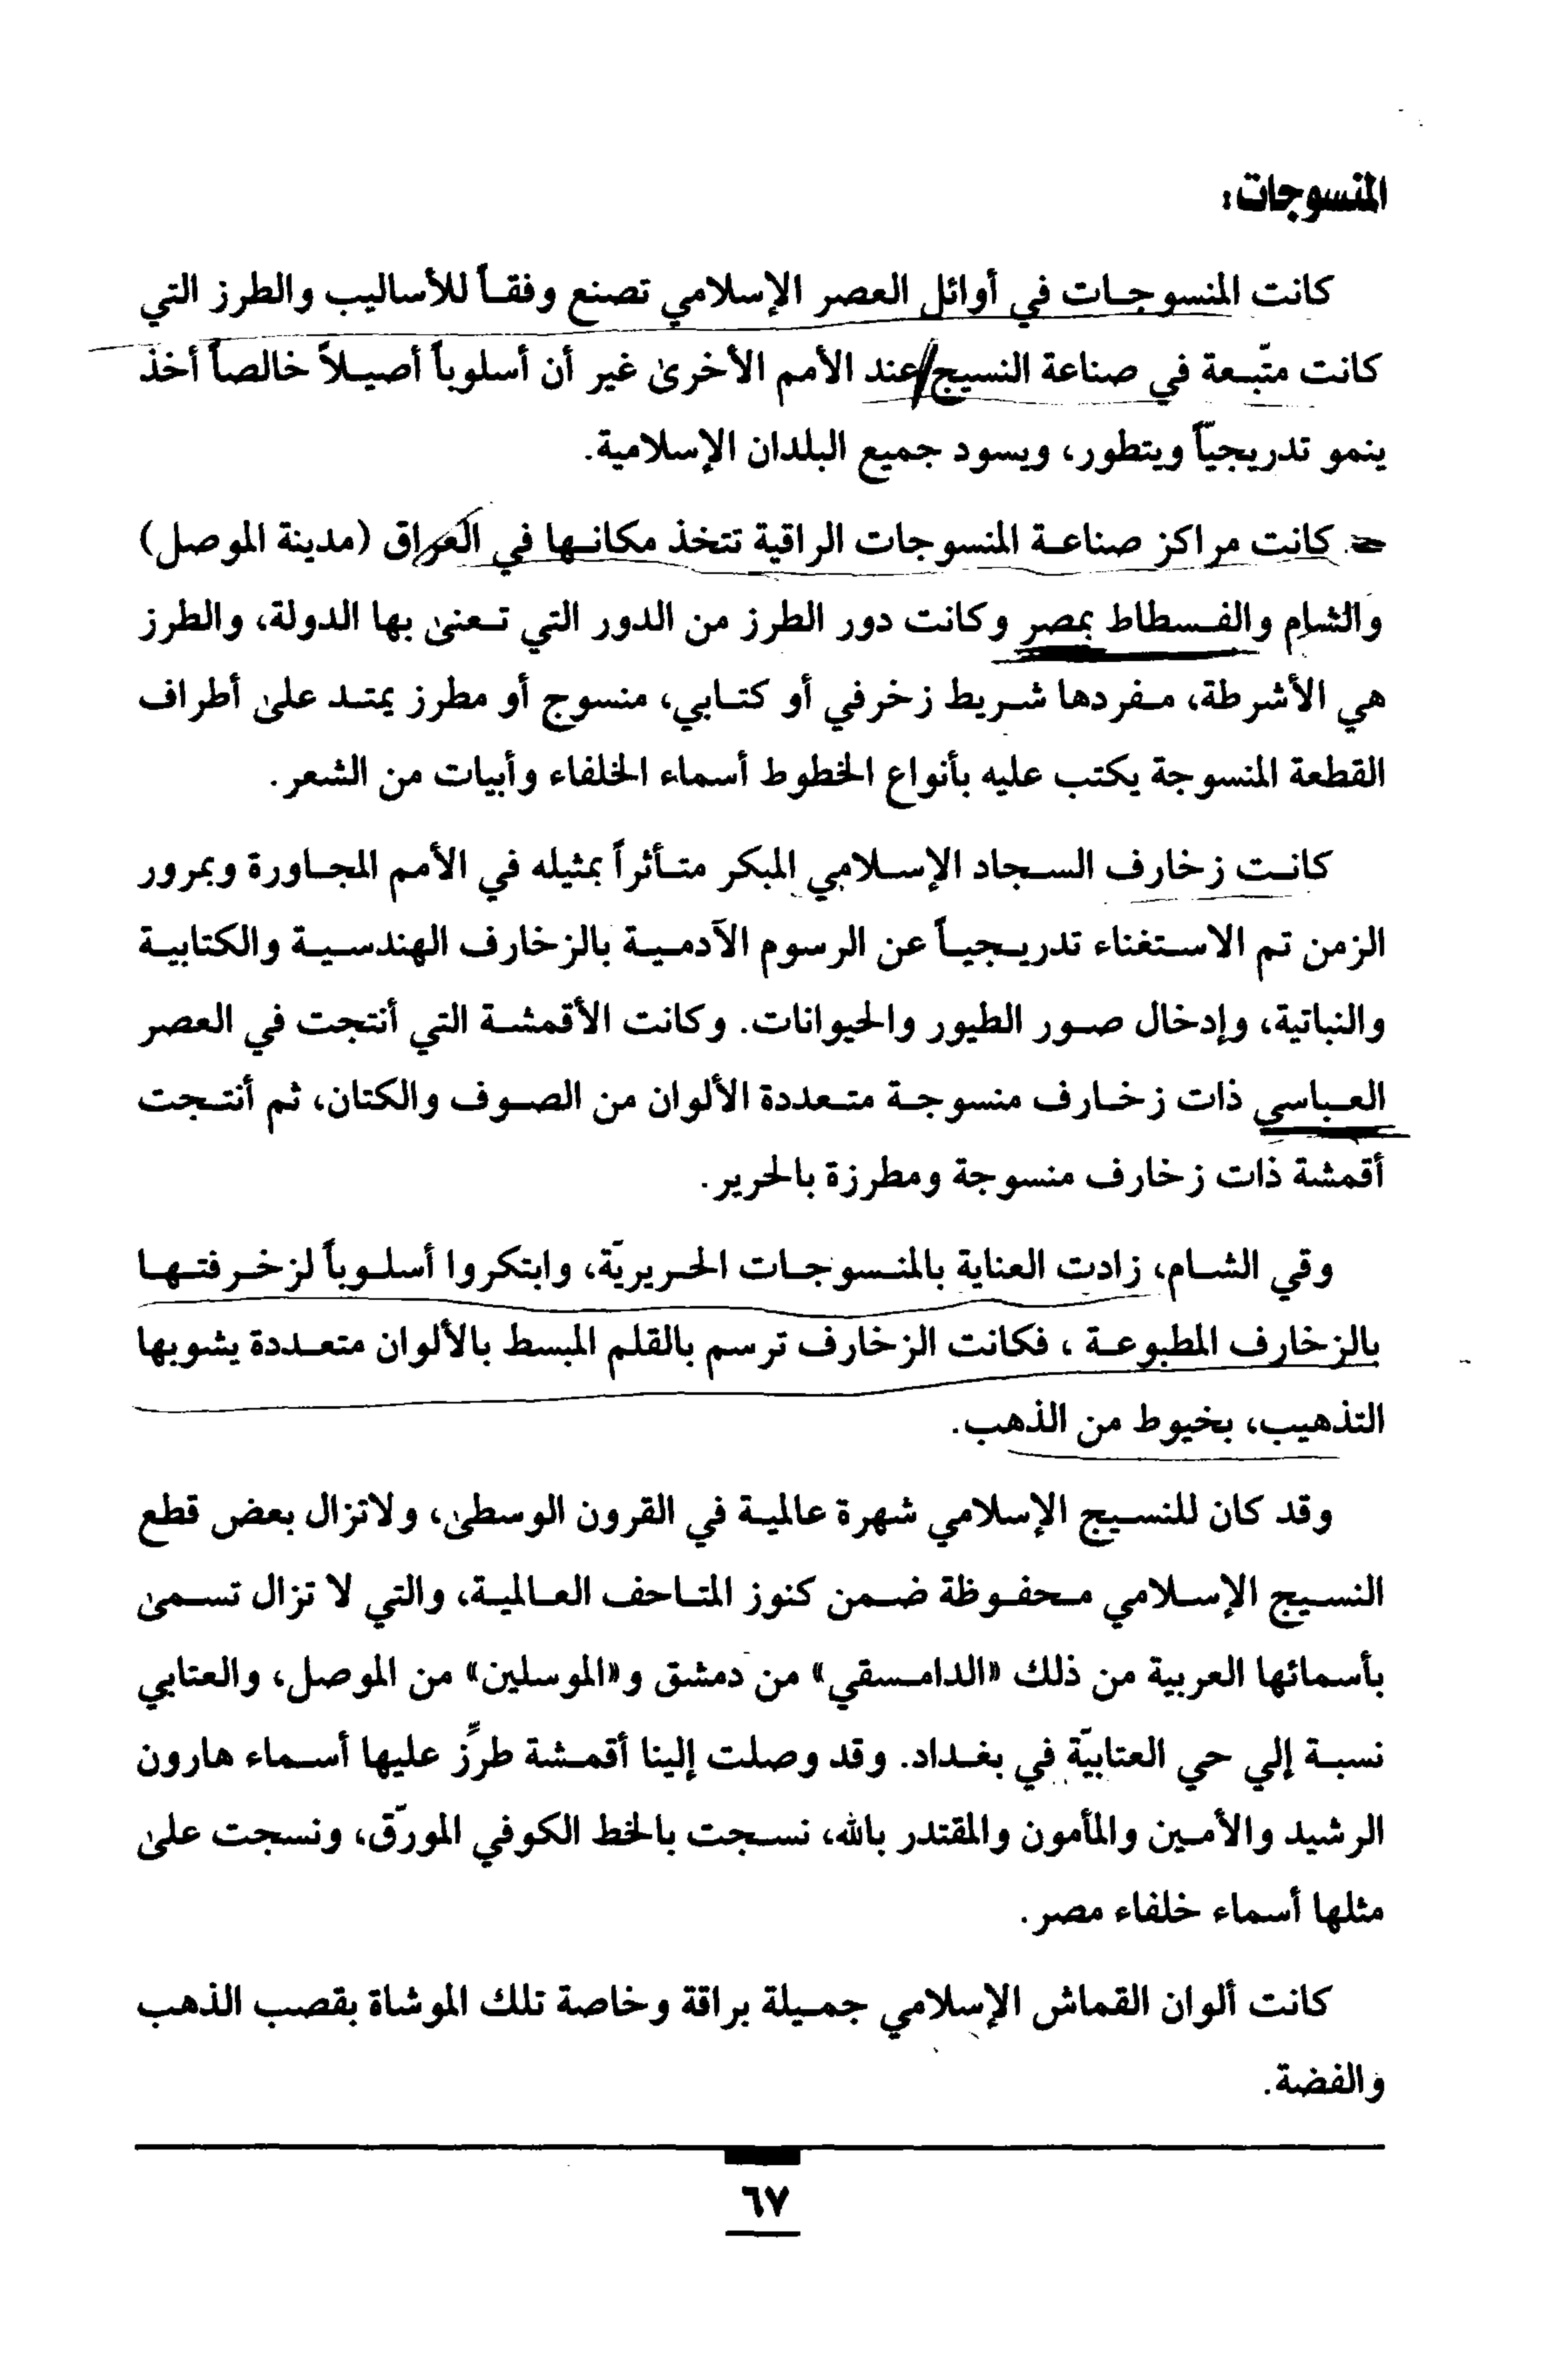 المنسوجات:
كانت المنسوجات في أوائل العصر الإسلامي تصنع وفقاً للأساليب والطرز التي
كانت متّبعة في صناعة النسيج عند الأمم الأخرى غير أن أسلوباً أصيلاً خالصاً أخذ
ينمو تدريجيّاً ويتطور، ويسود جميع البلدان الإسلامية.
كانت مراكز صناعة المنسوجات الراقية تتخذ مكانها في العراق (مدينة الموصل)
والشام والفسطاط بمصر وكانت دور الطرز من الدور التي تعنى بها الدولة، والطرز
هي الأشرطة، مفردها شريط زخرفي أو كتابي، منسوج أو مطرز يمتد على أطراف
القطعة المنسوجة يكتب عليه بأنواع الخطوط أسماء الخلفاء وأبيات من الشعر.
كانت زخارف السجاد الإسلامي المبكر متأثراً بمثيله في الأمم المجاورة وبمرور
الزمن تم الاستغناء تدريجياً عن الرسوم الآدمية بالزخارف الهندسية والكتابية
والنباتية، وإدخال صور الطيور والحيوانات. وكانت الأقمشة التي أنتجت في العصر
العباسي ذات زخارف منسوجة متعددة الألوان من الصوف والكتان، ثم أنتجت
أقمشة ذات زخارف منسوجة ومطرزة بالحرير.
وقي الشام، زادت العناية بالمنسوجات الحريريّة، وابتكروا أسلوباً لزخرفتها
بالزخارف المطبوعة ، فكانت الزخارف ترسم بالقلم المبسط بالألوان متعددة يشوبها
التذهيب، بخيوط من الذهب.
وقد كان للنسيج الإسلامي شهرة عالمية في القرون الوسطى، ولاتزال بعض قطع
النسيج الإسلامي محفوظة ضمن كنوز المتاحف العالمية، والتي لا تزال تسمى
بأسمائها العربية من ذلك «الدامسقي» من دمشق و«الموسلين» من الموصل، والعتابي
نسبة إلي حي العتابيّة في بغداد. وقد وصلت إلينا أقمشة طرِّز عليها أسماء هارون
الرشيد والأمين والمأمون والمقتدر بالله، نسجت بالخط الكوفي المورّق، ونسجت على
مثلها أسماء خلفاء مصر.
كانت ألوان القماش الإسلامي جميلة براقة وخاصة تلك الموشاة بقصب الذهب
والفضة.
٦٧